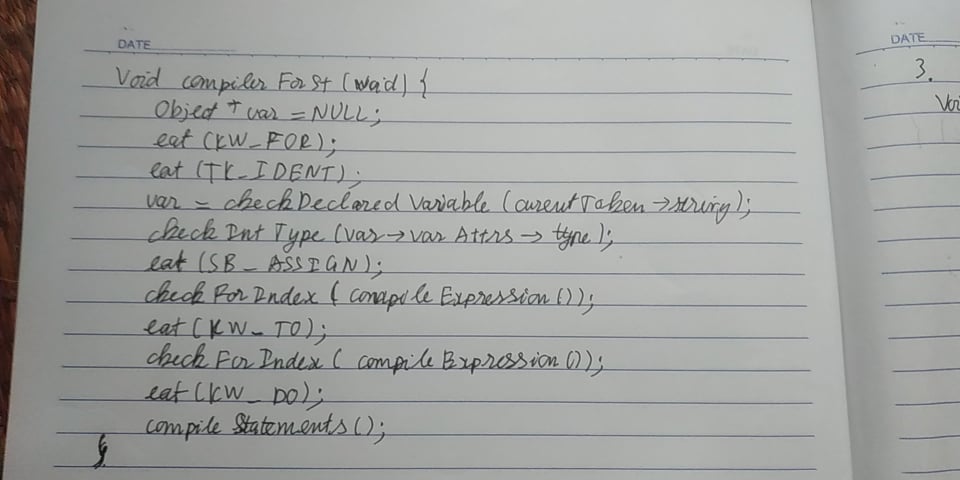 DATE
Void compiler ForSt (void) {
Object * var = NULL;
eat (KW_FOR);
eat (TK_IDENT);
var = checkDeclared Variable (curentToken → string);
check Int Type (var → var Attrs → type);
eat (SB_ASSIGN);
check For Index ( conapile Expression ());
eat (KW_TO);
check For Index ( compile Expression ());
eat (KW_DO);
compile Statements ();
}
DATE
3.
Voi